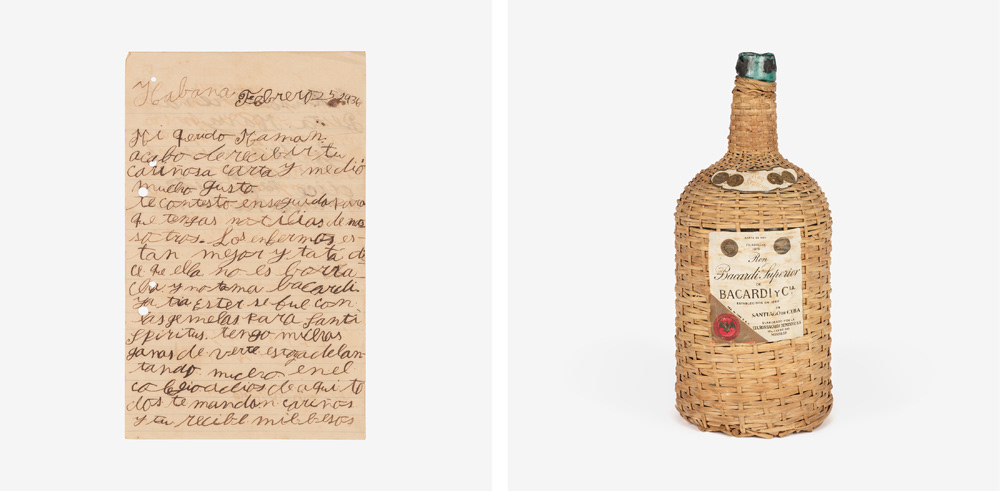 Habana Febrero 25 1936
Mi qerdo Maman.
acabo de recibir tu
cariñosa carta y me dió
mucho gusto.
te contesto enseguida para
qe tengas noticias de no
sotros. Los enfermos es-
tan mejor y tata di
ce que ella no es borra
cha y no toma bacardi.
ya tia Ester se fue con
las gemelas para Santi
Spiritus. tengo
ganas de verte estoy adelan-
tando mucho en el
colegio adios de aqui to
dos te mandan cariños
y tu recibe mil besos
Ron
Bacardi Superior
DE
BACARDI Y Cía.
ESTABLECIDA EN 1862
EN
SANTIAGO DE CUBA